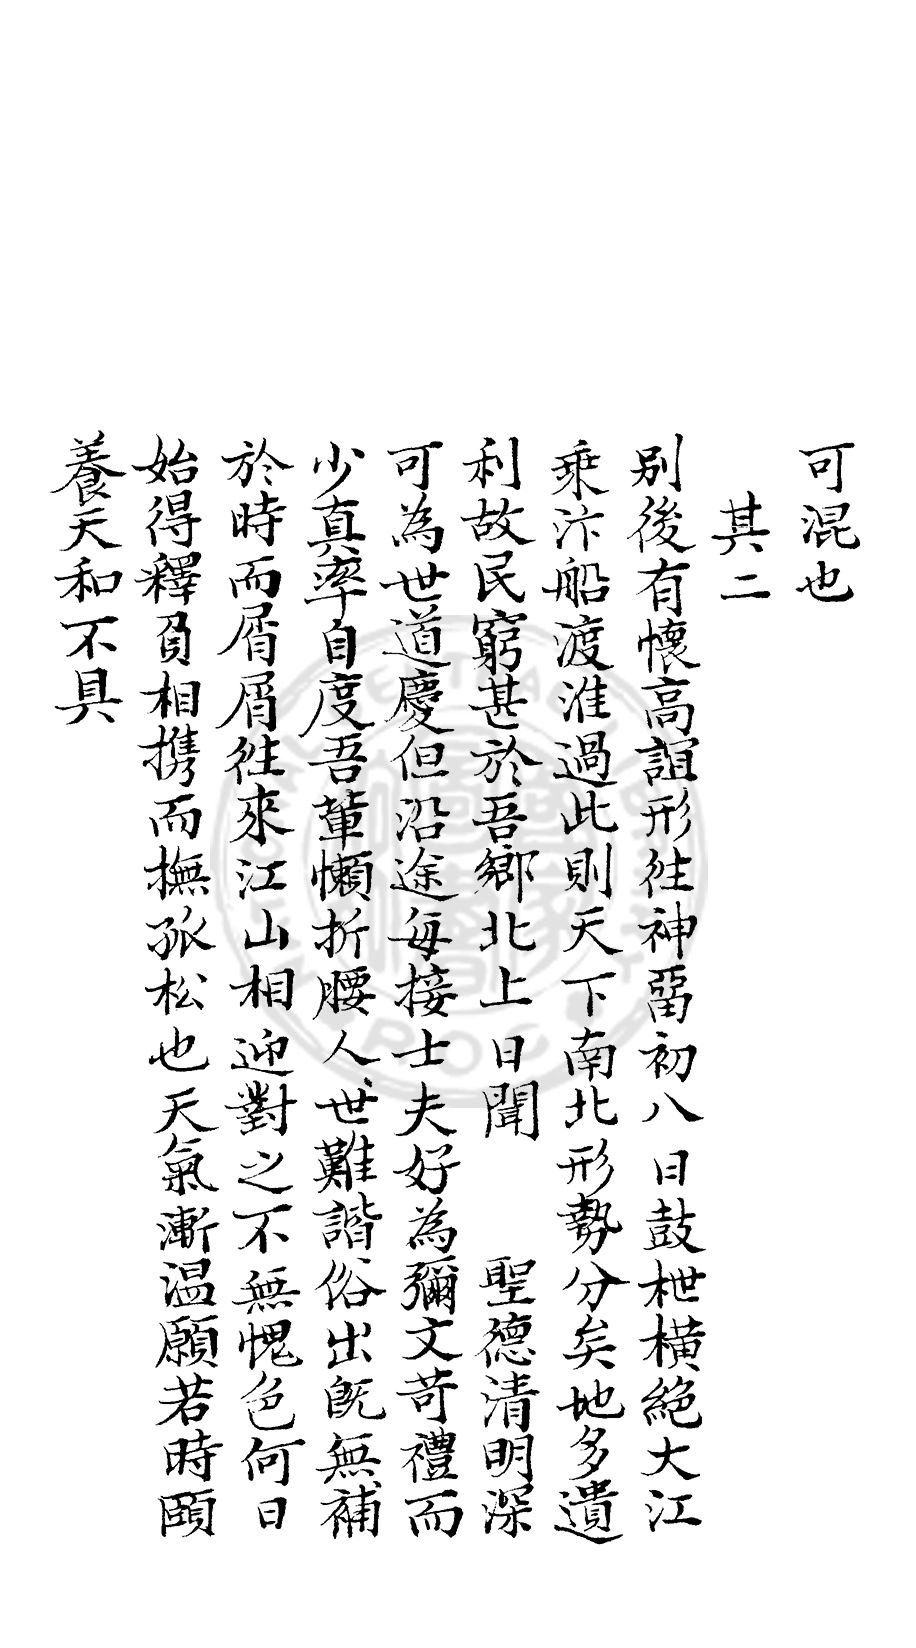 可混也
其二
別後有懷高誼形往神畱初八日鼓枻橫絶大江
乘汴船渡淮過此則天下南北形勢分矣地多遺
利故民窮甚於吾鄉北上日聞 聖德清明深
可為世道慶但沿途每接士夫好為彌文苛禮而
少真率自度吾輩懶折腰人世難諧俗出既無補
於時而屑屑往來江山相迎對之不無愧色何日
始得釋負相攜而撫孤松也天氣漸温願若時頤
養天和不具